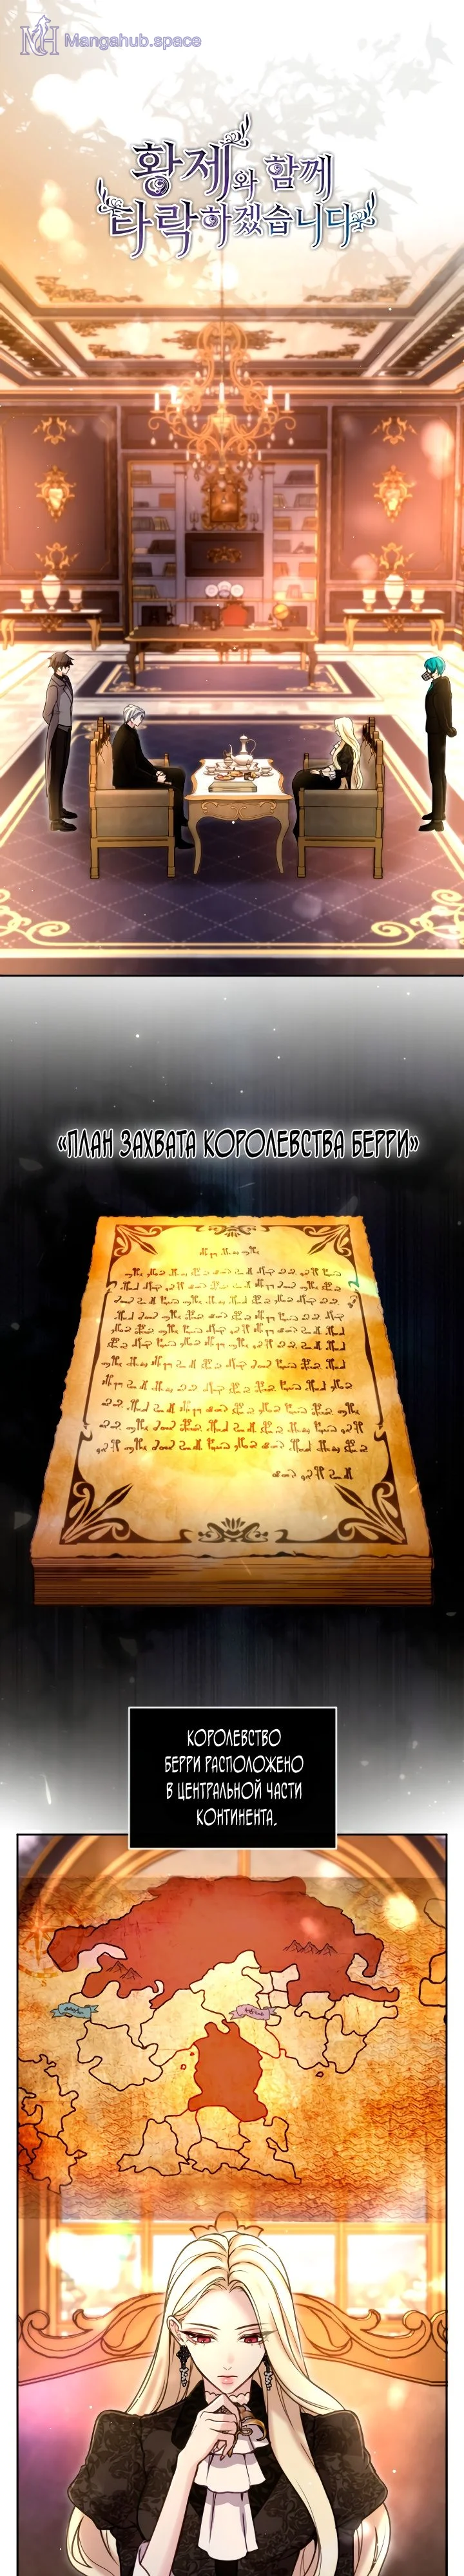 MH Mangahub.space
황제와 함께
타락하겠습니다
«ПЛАН ЗАХВАТА КОРОЛЕВСТВА БЕРРИ»
КОРОЛЕВСТВО
БЕРРИ РАСПОЛОЖЕНО
В ЦЕНТРАЛЬНОЙ ЧАСТИ
КОНТИНЕНТА.